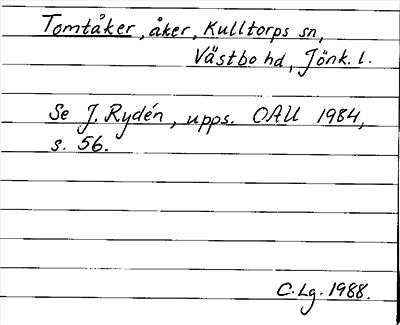 Tomtåker, åker, Kulltorps sn,
Västbo hd, Jönk. l.
Se J. Rydén, upps. OAU 1984,
s. 56.
C. Lg. 1988.